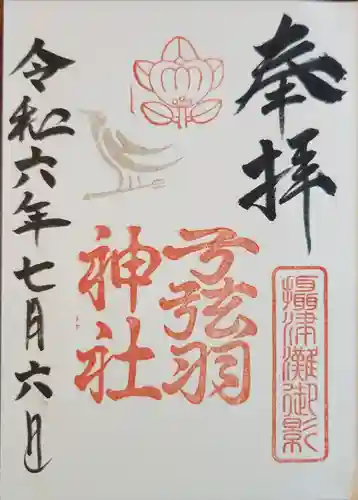 奉拝
攝津灘御影
弓弦羽
神社
令和六年七月六日